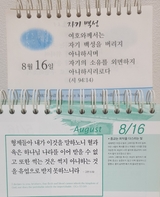 자기 백성
8월 16일
여호와께서는
자기 백성을 버리지
아니하시며
자기의 소유를 외면하지
아니하시리로다
(시 94:14)
August
8/16
형제들아 내가 이것을 말하노니 혈과
육은 하나님 나라를 이어 받을 수 없
고 또한 썩는 것은 썩지 아니하는 것
을 유업으로 받지 못하느니라